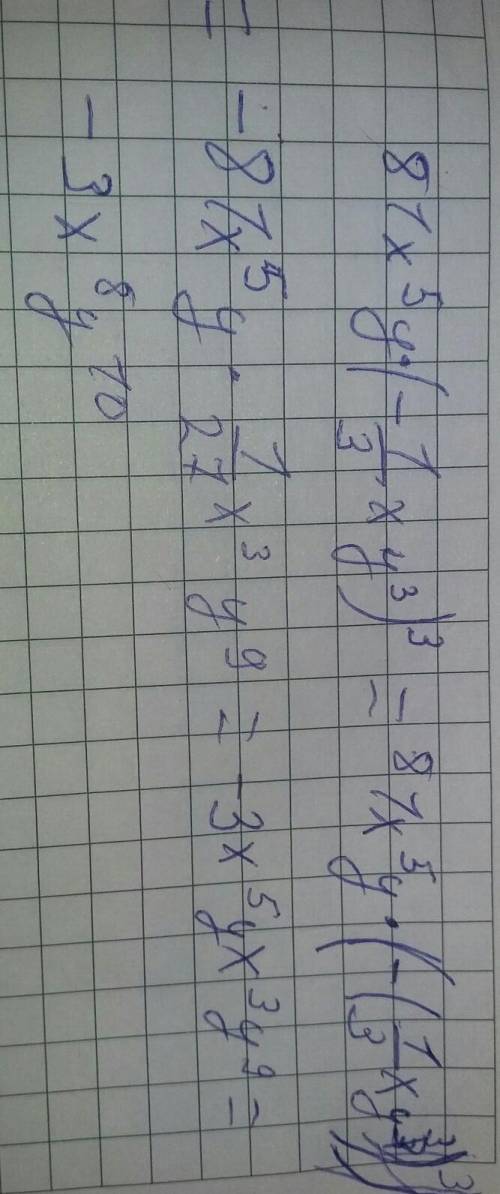 81x⁵y·(-1/3xy³)³ = 81x⁵y·(-(1/3xy³))³
= -81x⁵y·1/27x³y⁹ = -3x⁵yx³y⁹ =
-3x⁸y¹⁰